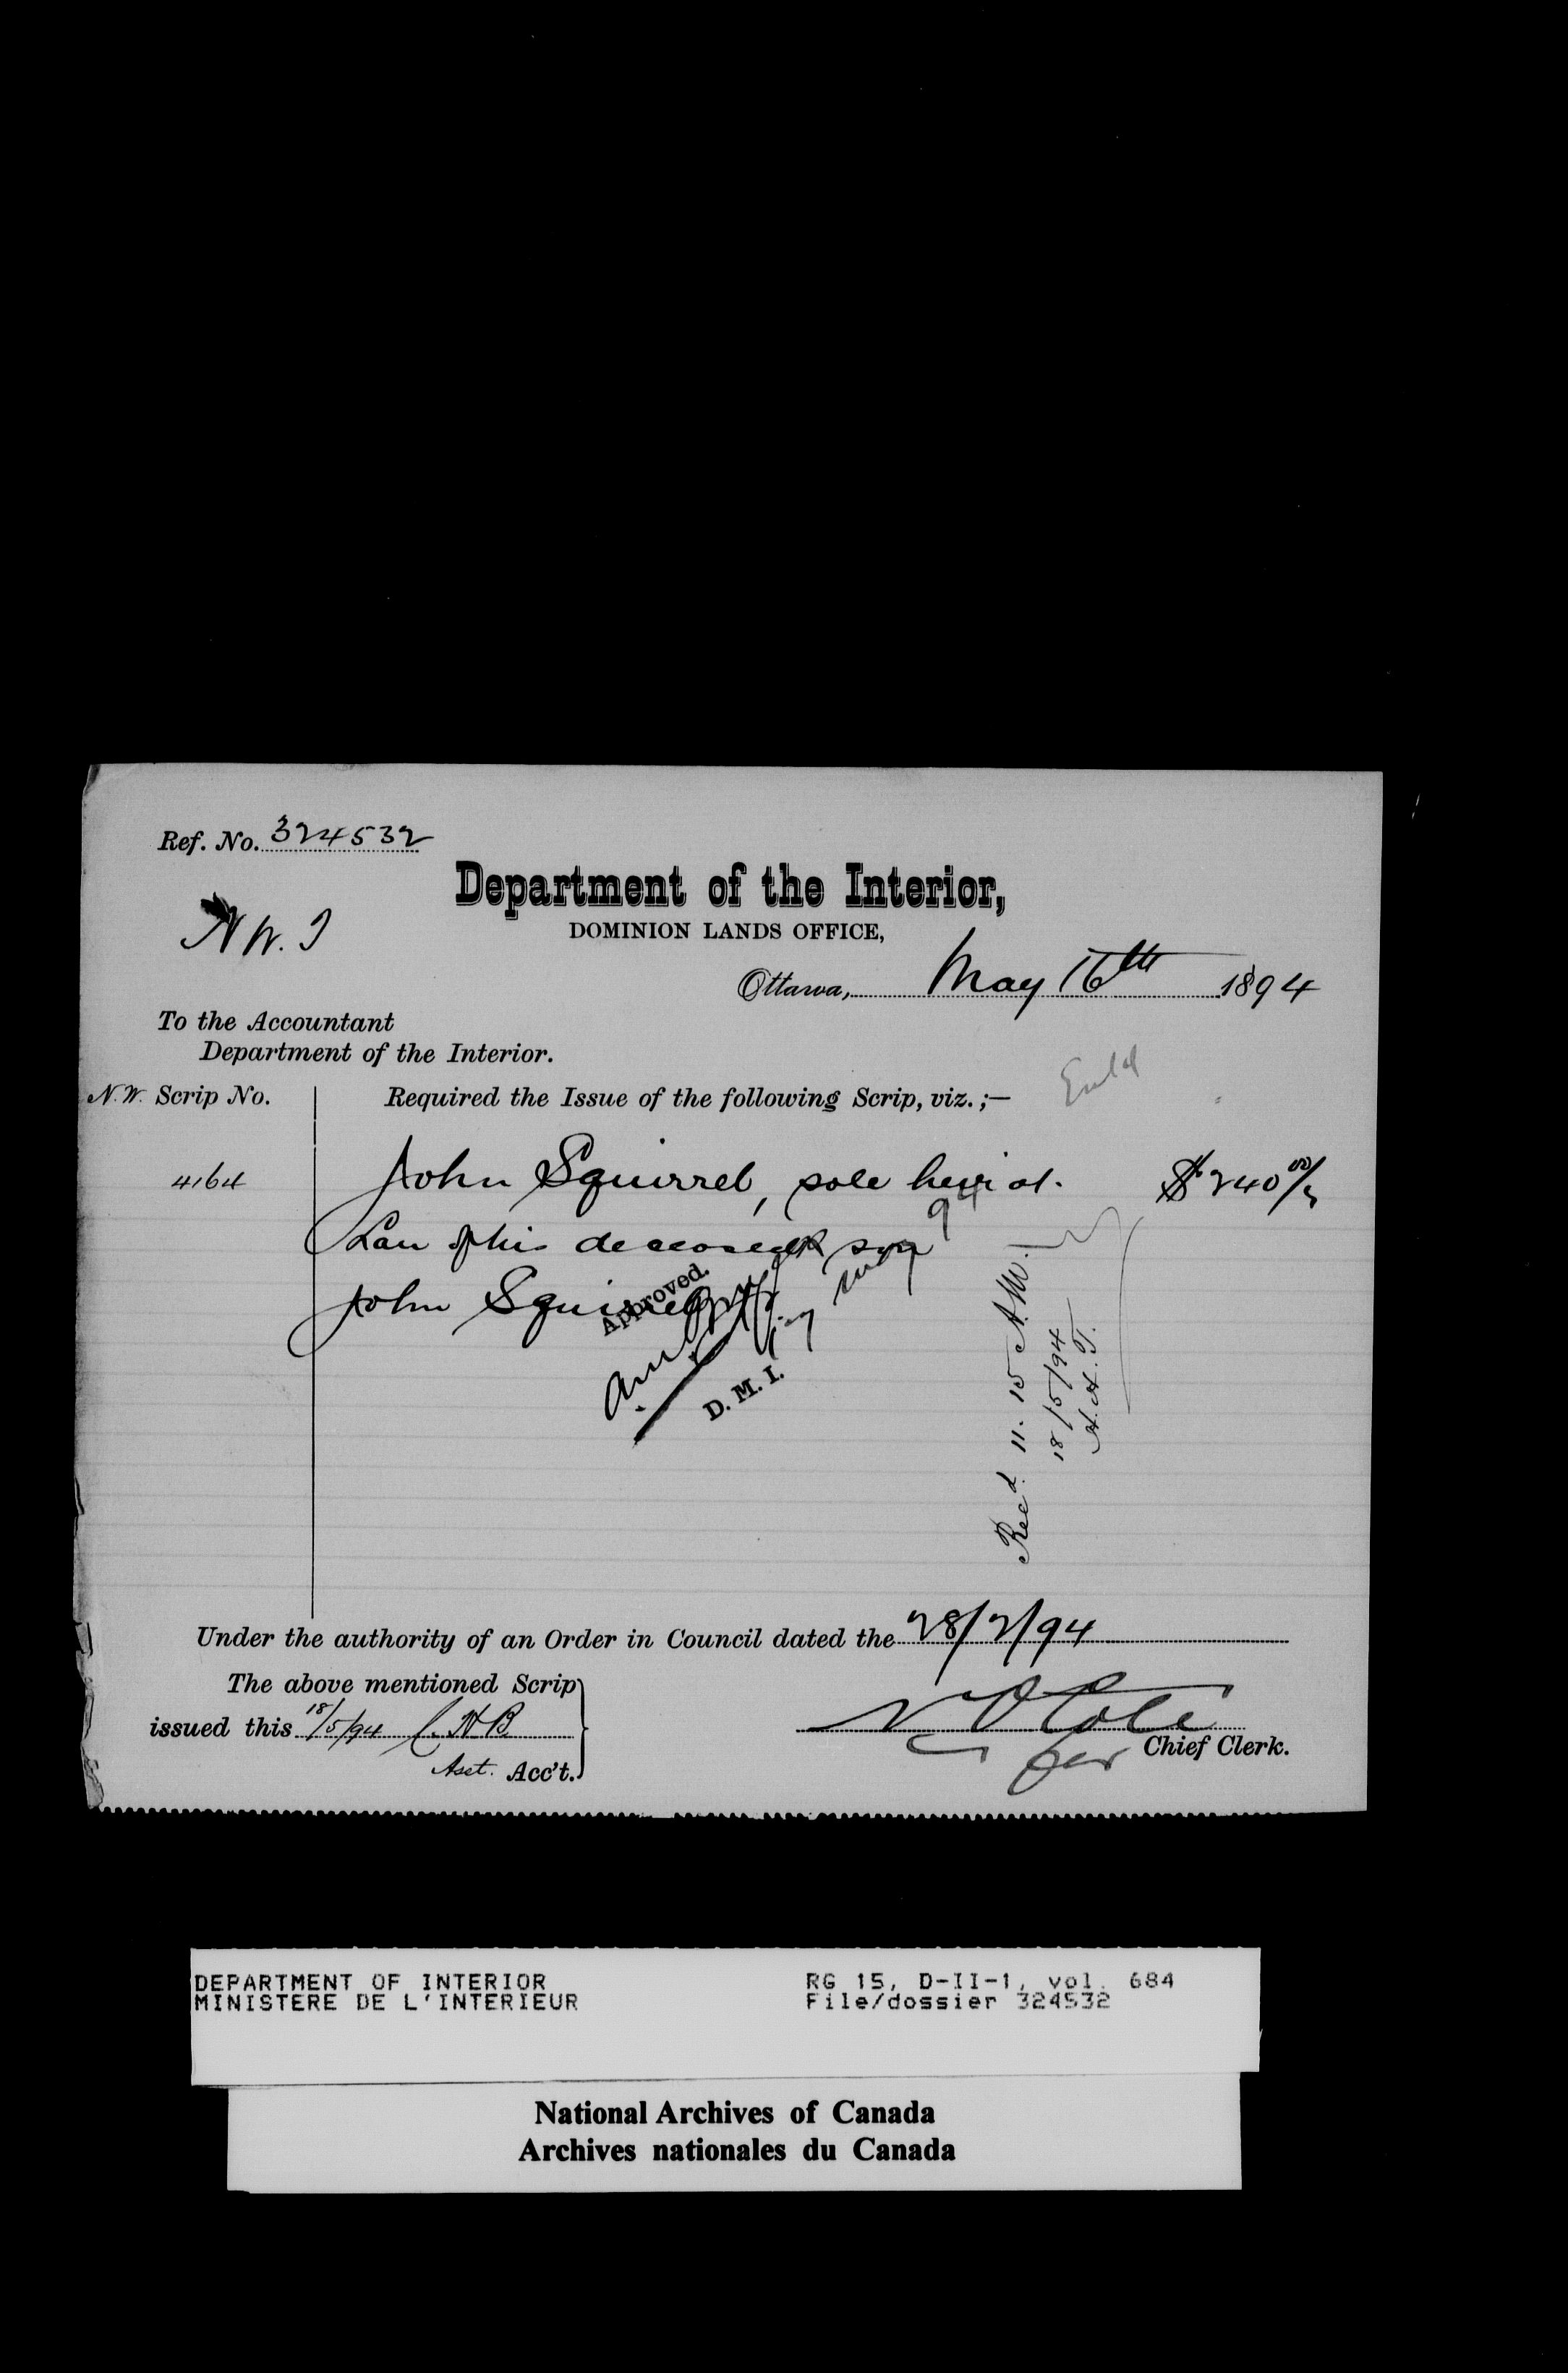 Ref. No. 324532
Department of the Interior,
N W. T
DOMINION LANDS OFFICE,
Ottawa, May 16th 1894
To the Accountant
Department of the Interior.
N.W. Scrip No.
Required the Issue of the following Scrip, viz.;—
4164
John Squirrel, sole heir at
$240 00/
Law of his deceased son
John Squirrel
Approved.
17 May 94
D. M. I.
Recd. 11.15 A.M.
18/5/94
H.H.T.
Under the authority of an Order in Council dated the 28/2/94
The above mentioned Scrip
issued this 18/5/94 C.H.B
Asst. Acc't.
N O Cote
Chief Clerk.
per
DEPARTMENT OF INTERIOR
MINISTERE DE L'INTERIEUR
RG 15, D-II-1, vol. 684
File/dossier 324532
National Archives of Canada
Archives nationales du Canada